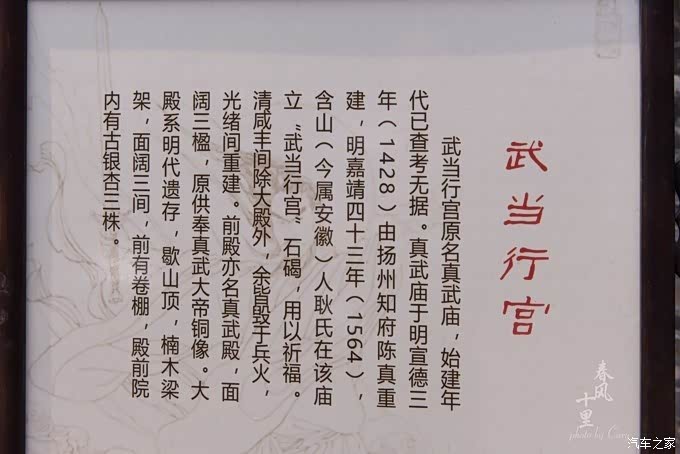 武当行宫
武当行宫原名真武庙，始建年
代已查考无据。真武庙于明宣德三
年（1428）由扬州知府陈真重
建，明嘉靖四十三年（1564），
含山（今属安徽）人耿氏在该庙
立“武当行宫”石碣，用以祈福。
清咸丰间除大殿外，余皆毁于兵火，
光绪间重建。前殿亦名真武殿，面
阔三楹，原供奉真武大帝铜像。大
殿系明代遗存，歇山顶，楠木梁
架，面阔三间，前有卷棚，殿前院
内有古银杏三株。
春风
十里
photo by
汽车之家